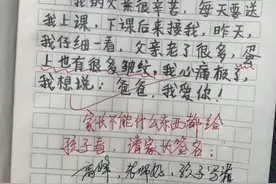 我的父亲很辛苦，每天要送
我上课，下课后来接我，昨天，
我仔细一看，父亲老了很多，蛋
上也有很多皱纹，我心痛极了，
我想说：爸爸，我爱你！
家长不能什么东西都给
孩子看，请家长签名：
老师好，孩子写错